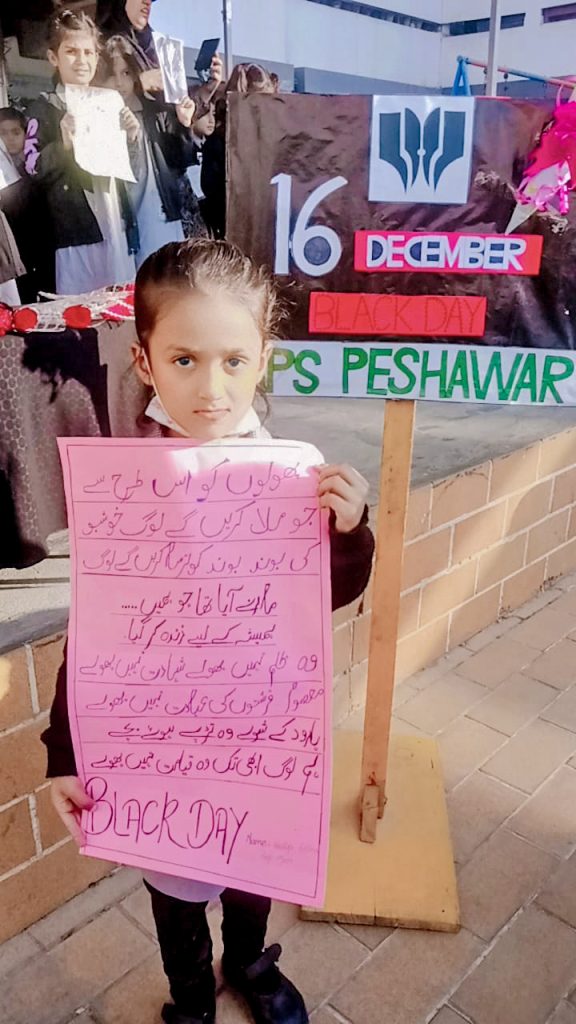 16
DECEMBER
BLACK DAY
PS PESHAWAR
پھولوں کو اس طرح سے
جو مسلا کریں گے لوگ خوشبو
کی بوند بوند کو ترسا کریں گے لوگ
مارنے آیا تھا جو ہمیں.....
ہمیشہ کے لیے زندہ کر گیا.
وہ ظلم نہیں بھولے شہادت نہیں بھولے
معصوم فرشتوں کی نہیں بھولے
بارود کے وہ تڑپے ہوئے بچے
لوگ ابھی تک وہ قیامت نہیں بھولے
BLACK DAY
Name: